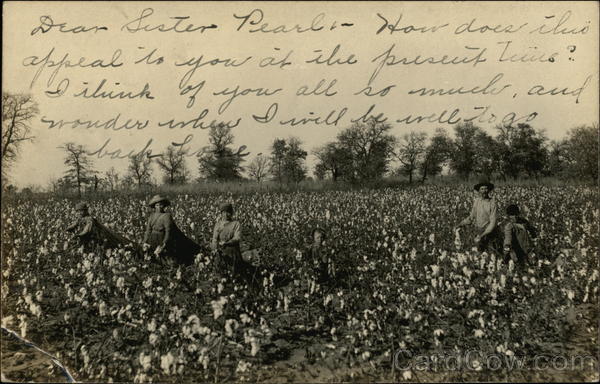 Dear Sister Pearl:- How does this
appeal to you at the present time?
I think of you all so much, and
wonder when I will be well to go
back Home
CardCow.com